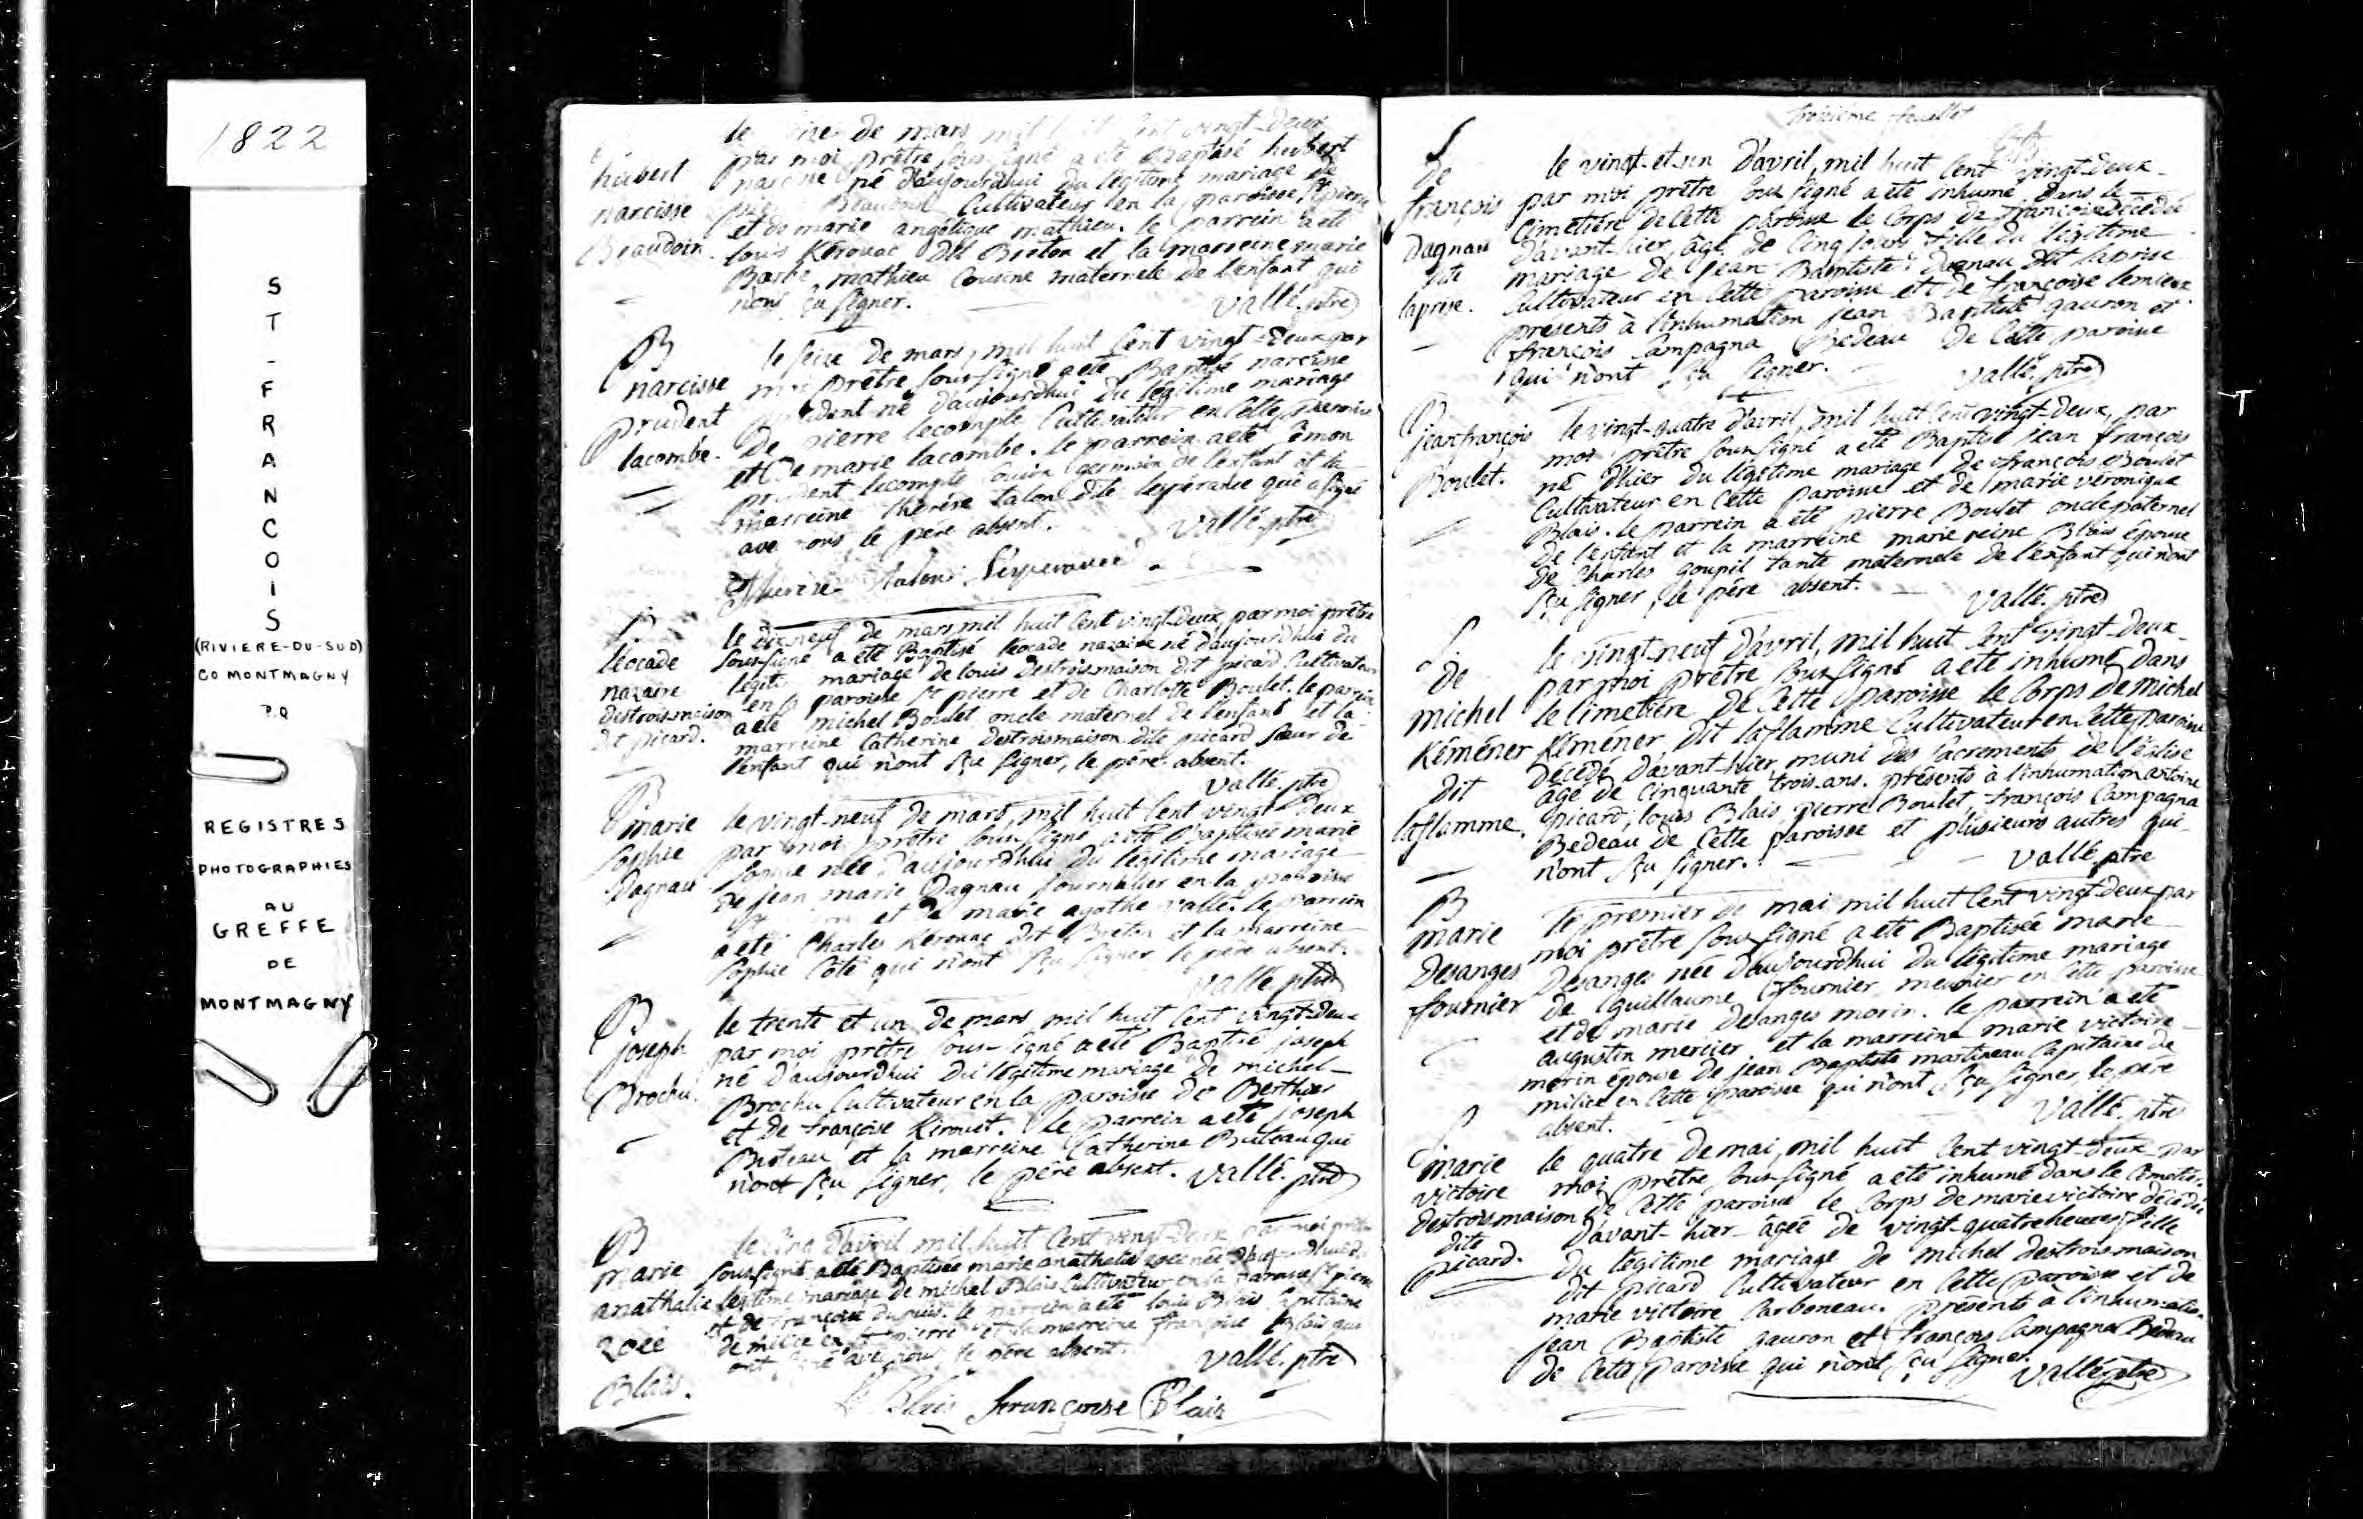 1822
ST-FRANCOIS
(RIVIERE-DU-SUD)
CO MONTMAGNY
P.Q
REGISTRES
PHOTOGRAPHIES
AU
GREFFE
DE
MONTMAGNY
hubert
narcisse
Beaudoin.
le de mars mil huit cent vingt-deux
par moi prêtre sous signé a été Baptisé hubert
narcisse né d'aujourdhui du légitime mariage de
Beaudoin Cultivateur en la paroisse St pierre
et de marie angélique mathieu. le parrein a été
louis Kerouac dit Breton et la marreine marie
Barbe mathieu Cousine maternele de l'enfant qui
n'ont sçu signer.
Vallé. ptre
B
narcisse
prudent
lacombe.
le seize de mars, mil huit cent vingt-deux par
moi prêtre sous-signé a été Baptisé narcisse
prudent né d'aujourdhui du légitime mariage
de pierre lecompte Cultivateur en cette paroisse
et de marie lacombe. le parrein a été Simon
prudent lecompte Cousin germain de l'enfant et la
marreine therese talon dite lesperance qui a signé
avec nous le pere absent.
Vallé. ptre
Therese talon Lesperance
B
léocade
nazaire
destroismaison
dit picard.
le dixneuf de mars mil huit cent vingt-deux, par moi prêtre
sous-signé a été Baptisé léocade nazaire né d'aujourdhui du
légitime mariage de louis destroismaison dit picard Cultivateur
en la paroisse St pierre et de Charlotte Boulet. le parrein
a été michel Boulet oncle maternel de l'enfant et la
marreine Catherine destroismaison dite picard sœur de
l'enfant qui n'ont sçu signer, le pere absent.
Vallé. ptre
B
marie
Sophie
Dagnau
le vingt-neuf de mars, mil huit cent vingt-deux
par moi prêtre sous signé a été Baptisée marie
Sophie née d'aujourdhui du légitime mariage
de jean marie Dagnau journalier en la paroisse
et de marie agathe vallé. le parrein
a été Charles Kerouac dit Breton et la marreine
Sophie Côté qui n'ont sçu signer le père absent.
Vallé. ptre
B
joseph
Brochu.
le trente et un de mars mil huit cent vingt-deux
par moi prêtre sous-signé a été Baptisé joseph
né d'aujourdhui du légitime mariage de michel
Brochu Cultivateur en la paroisse de Berthier
et de françoise Kirouet. le parrein a été joseph
Buteau et la marreine Catherine Buteau qui
n'ont sçu signer, le père absent. Vallé. ptre
B
marie
anathalie
zoée
Blais.
le cinq d'avril mil huit cent vingt-deux par moi prêtre
sous-signé a été Baptisée marie anathalie zoée née d'aujourdhui du
légitime mariage de michel Blais Cultivateur en la paroisse St pierre
et de françoise Dupuis. le parrein a été louis Blais Capitaine
de milice en St pierre et la marreine françoise Blais qui
ont signé avec nous, le père absent.
Vallé. ptre
Ls Blais françoise Blais
troisième feuillet
S
de
françois
Dagnau
dite
laprise.
le vingt-et-un d'avril, mil huit cent vingt-deux
par moi prêtre sous signé a été inhumé dans le
Cimetière de cette paroisse le Corps de françoise décédée
d'avant-hier, âgé de cinq jours fille du légitime
mariage de jean Baptiste dagnau dit laprise
Cultivateur en cette paroisse et de françoise lemieux
présents à l'inhumation jean Baptiste gauron et
françois Campagna Bedeau de cette paroisse
qui n'ont sçu signer.
Vallé. ptre
B
jeanfrançois
Boulet.
le vingt-quatre d'avril, mil huit cent vingt-deux, par
moi prêtre sous signé a été Baptisé jean françois
né d'hier du légitime mariage de françois Boulet
Cultivateur en cette paroisse et de marie véronique
Blais. le parrein a été pierre Boulet oncle paternel
de l'enfant et la marreine marie reine Blais épouse
de Charles goupil tante maternele de l'enfant qui n'ont
sçu signer, le père absent.
Vallé. ptre
S
de
michel
Kéméner
dit
laflamme.
le vingt-neuf d'avril, mil huit cent vingt-deux
par moi prêtre sous signé a été inhumé dans
le Cimetière de cette paroisse le Corps de michel
Kéméner dit laflamme Cultivateur en cette paroisse
décédé d'avant-hier, muni des sacrements de l'église
âgé de cinquante trois ans. présents à l'inhumation antoine
picard, louis Blais, pierre Boulet, françois Campagna
Bedeau de cette paroisse et plusieurs autres qui
n'ont sçu signer.
Vallé ptre
B
marie
Desanges
fournier
le premier de mai mil huit cent vingt-deux par
moi prêtre sous signé a été Baptisée marie
Desanges née d'aujourdhui du légitime mariage
de guillaume fournier meunier en cette paroisse
et de marie desanges morin. le parrein a été
augustin mercier et la marreine marie victoire
morin épouse de jean Baptiste martineau Capitaine de
milice en cette paroisse qui n'ont sçu signer, le père
absent.
Vallé. ptre
S
marie
victoire
destroismaison
dite
picard.
le quatre de mai, mil huit cent vingt-deux par
moi prêtre sous-signé a été inhumé dans le Cimetière
de cette paroisse le Corps de marie victoire décédée
d'avant-hier âgée de vingt-quatre heures fille
du légitime mariage de michel destroismaison
dit picard Cultivateur en cette paroisse et de
marie victoire Carboneau. présents à l'inhumation
jean Baptiste gauron et françois Campagna Bedeau
de cette paroisse qui n'ont sçu signer.
Vallé. ptre